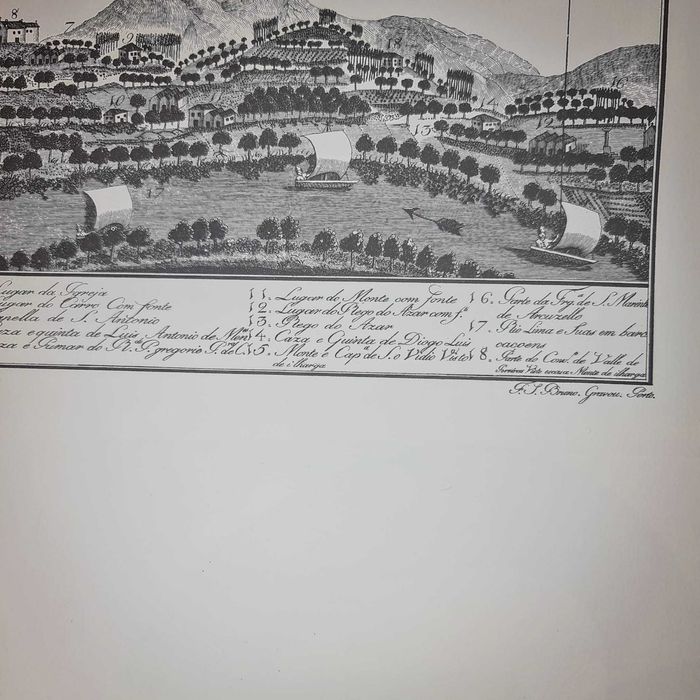 8 7 9 8
10 14 16
13 12
17
Lugar da Igreja
Lugar do Carro Com fonte
Capella de S. Antonio
eza e quinta de Luis Antonio de Men
aza e Pumar do
11. Lugar do Monte com fonte
12. Lugar do Pego do Azar com fᵃ
13. Pego do Azar
14. Caza e Quinta de Diogo Luis
15. Monte e Capᵃ de S. o Vidio Visto
de ilharga
16. Parte da Frgᵃ de S. Marinh
de Arcuzello
17. Rio Lima e Suas em barc
cacoens
18. Parte do Convᵒ de Valle de
Pereiras Visto escasa: Nmente de ilharga
F. S. Bruno. Gravou. Porto.